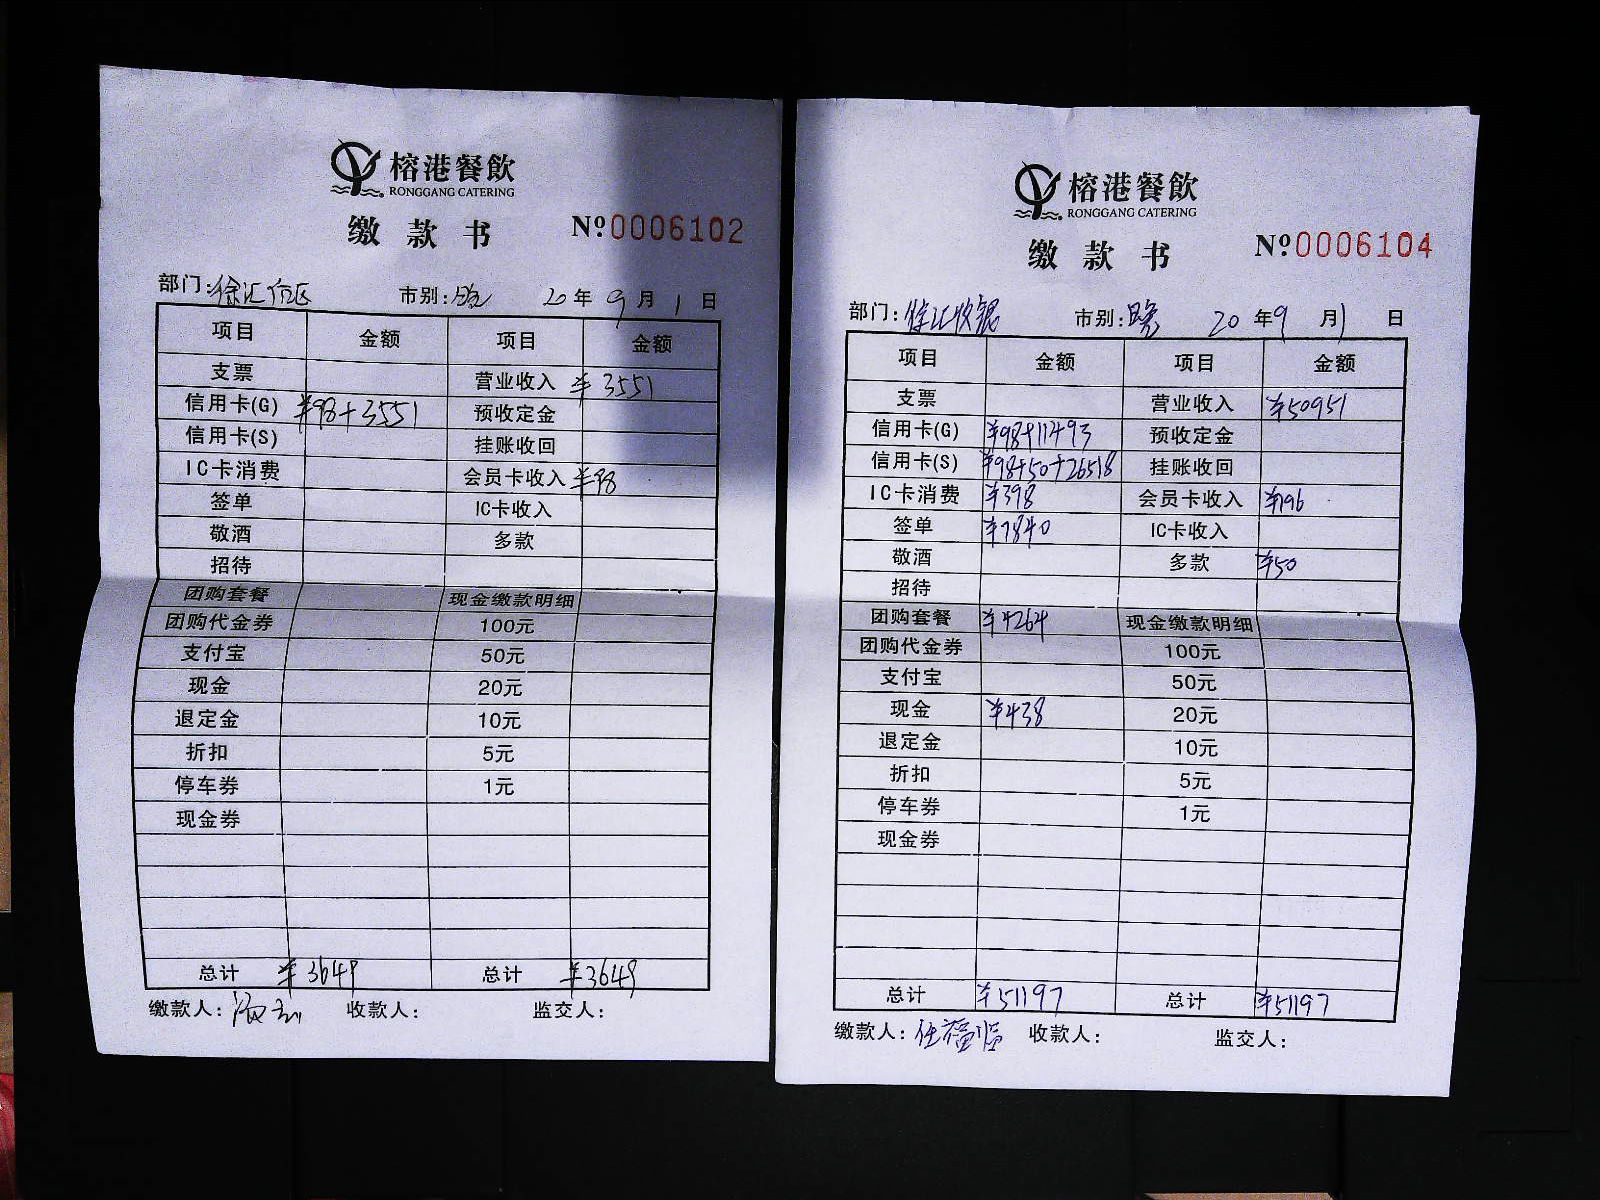 榕港餐飲
RONGGANG CATERING
缴款书 №0006102
部门: 徐汇 市别: 晚 20年9月1日
项目 金额 项目 金额
支票 营业收入 ¥3551
信用卡(G) ¥98+3551 预收定金
信用卡(S) 挂账收回
IC卡消费 会员卡收入 ¥98
签单 IC卡收入
敬酒 多款
招待
团购套餐 现金缴款明细
团购代金券 100元
支付宝 50元
现金 20元
退定金 10元
折扣 5元
停车券 1元
现金券
总计 ¥3649 总计 ¥3649
缴款人: 收款人: 监交人:
榕港餐飲
RONGGANG CATERING
缴款书 №0006104
部门: 徐汇收银 市别: 晚 20年9月1日
项目 金额 项目 金额
支票 营业收入 ¥50951
信用卡(G) ¥98+11493 预收定金
信用卡(S) ¥98+50+26518 挂账收回
IC卡消费 ¥398 会员卡收入 ¥196
签单 ¥7840 IC卡收入
敬酒 多款 ¥50
招待
团购套餐 ¥4264 现金缴款明细
团购代金券 100元
支付宝 50元
现金 ¥438 20元
退定金 10元
折扣 5元
停车券 1元
现金券
总计 ¥51197 总计 ¥51197
缴款人: 收款人: 监交人: